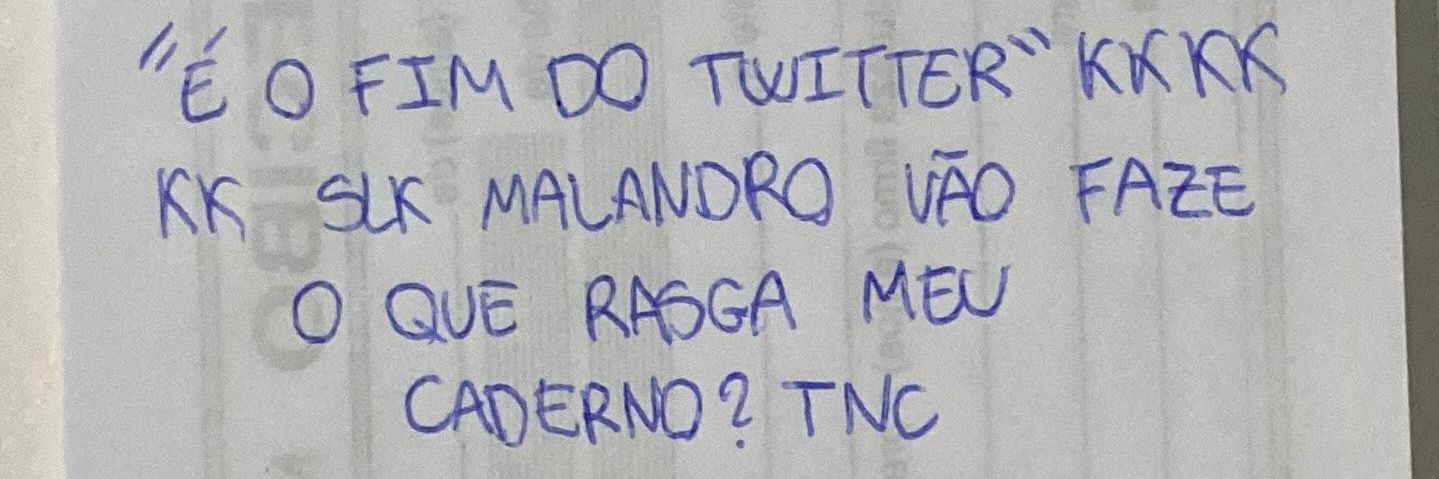 "É O FIM DO TWITTER" KKKK
KK SLK MALANDRO VÃO FAZE
O QUE RASGA MEU
CADERNO? TNC